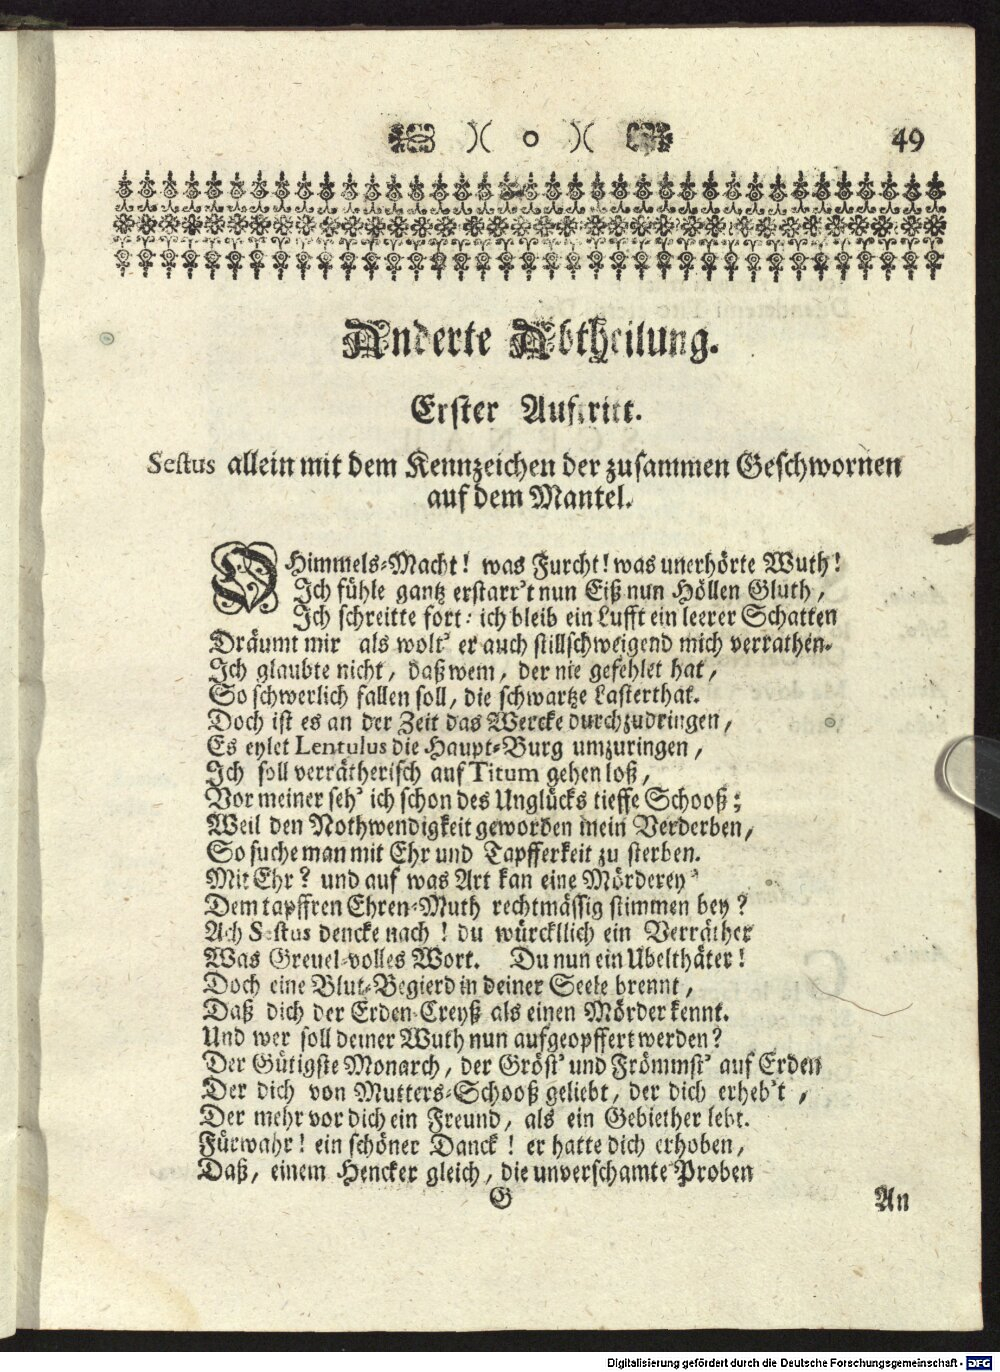 )( o )( 49
Anderte Abtheilung.
Erster Auftritt.
Sestus allein mit dem Kennzeichen der zusammen Geschwornen
auf dem Mantel.
O Himmels-Macht! was Furcht! was unerhörte Wuth!
Ich fühle gantz erstarr't nun Eiß nun Höllen Gluth,
Ich schreitte fort: ich bleib ein Lufft ein leerer Schatten
Dräumt mir als wolt' er auch stillschweigend mich verrathen.
Ich glaubte nicht, daß wem, der nie gefehlet hat,
So schwerlich fallen soll, die schwartze Lasterthat.
Doch ist es an der Zeit das Wercke durchzudringen,
Es eylet Lentulus die Haupt-Burg umzuringen,
Ich soll verrätherisch auf Titum gehen loß,
Vor meiner seh' ich schon des Unglücks tieffe Schooß;
Weil den Nothwendigkeit geworden mein Verderben,
So suche man mit Ehr und Tapfferkeit zu sterben.
Mit Ehr? und auf was Art kan eine Mörderey
Dem tapffren Ehren-Muth rechtmässig stimmen bey?
Ach Sestus dencke nach! du würckllich ein Verräther
Was Greuel-volles Wort. Du nun ein Ubelthäter!
Doch eine Blut-Begierd in deiner Seele brennt,
Daß dich der Erden-Creyß als einen Mörder kennt.
Und wer soll deiner Wuth nun aufgeopffert werden?
Der Gütigste Monarch, der Gröst' und Frömmst' auf Erden
Der dich von Mutters-Schooß geliebt, der dich erheb't,
Der mehr vor dich ein Freund, als ein Gebiether lebt.
Fürwahr! ein schöner Danck! er hatte dich erhoben,
Daß, einem Hencker gleich, die unverschamte Proben
G An
Digitalisierung gefördert durch die Deutsche Forschungsgemeinschaft - DFG